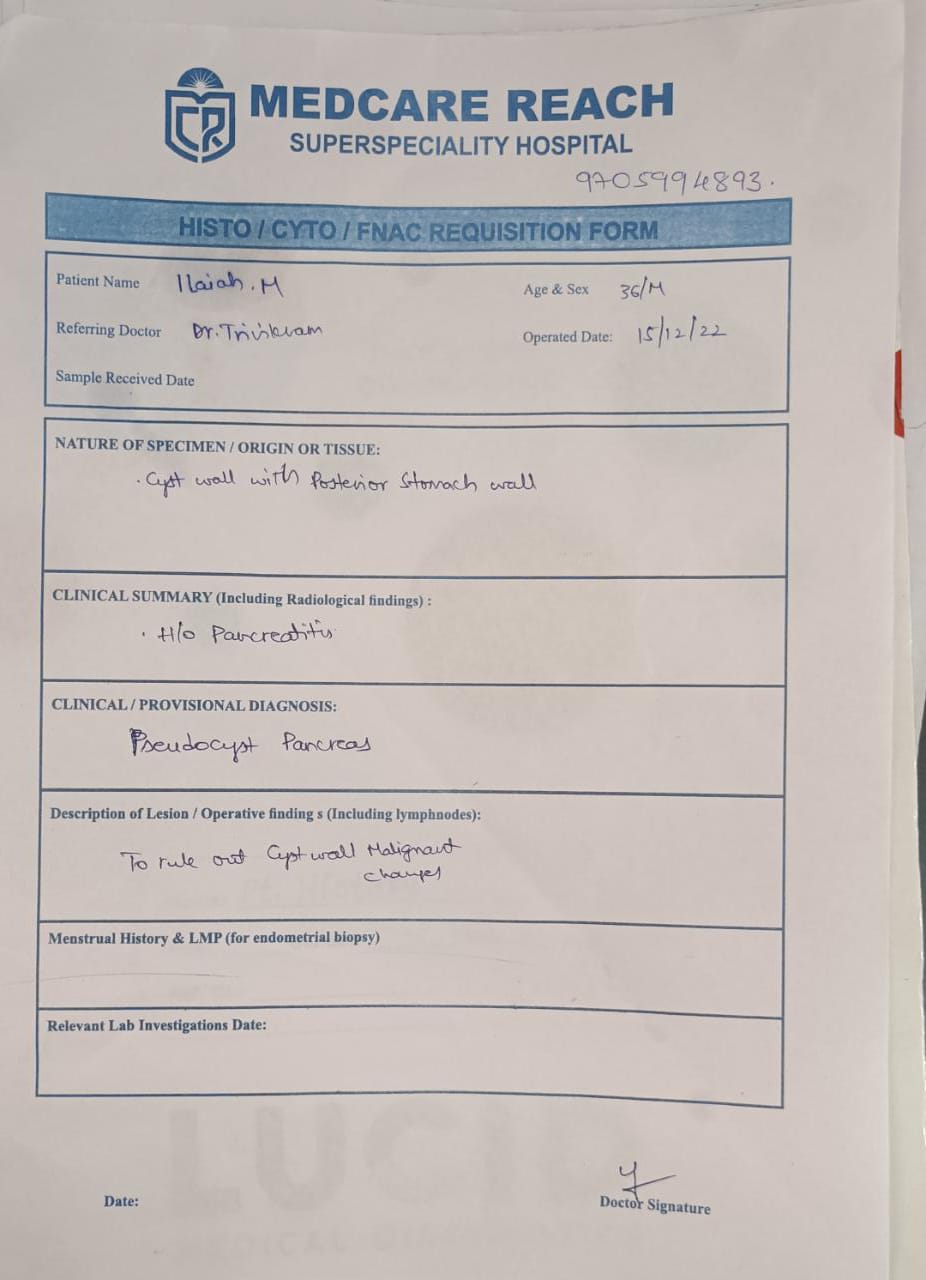 MEDCARE REACH
SUPERSPECIALITY HOSPITAL
9705994893.
HISTO / CYTO / FNAC REQUISITION FORM
Patient Name Ilaiah. M Age & Sex 36/M
Referring Doctor Dr. Trivikram Operated Date: 15/12/22
Sample Received Date
NATURE OF SPECIMEN / ORIGIN OR TISSUE:
. Cyst wall with Posterior Stomach wall
CLINICAL SUMMARY (Including Radiological findings) :
. H/o Pancreatitis
CLINICAL / PROVISIONAL DIAGNOSIS:
Pseudocyst Pancreas
Description of Lesion / Operative finding s (Including lymphnodes):
To rule out Cyst wall Malignant
changes
Menstrual History & LMP (for endometrial biopsy)
Relevant Lab Investigations Date:
LUCID
Date:
Doctor Signature